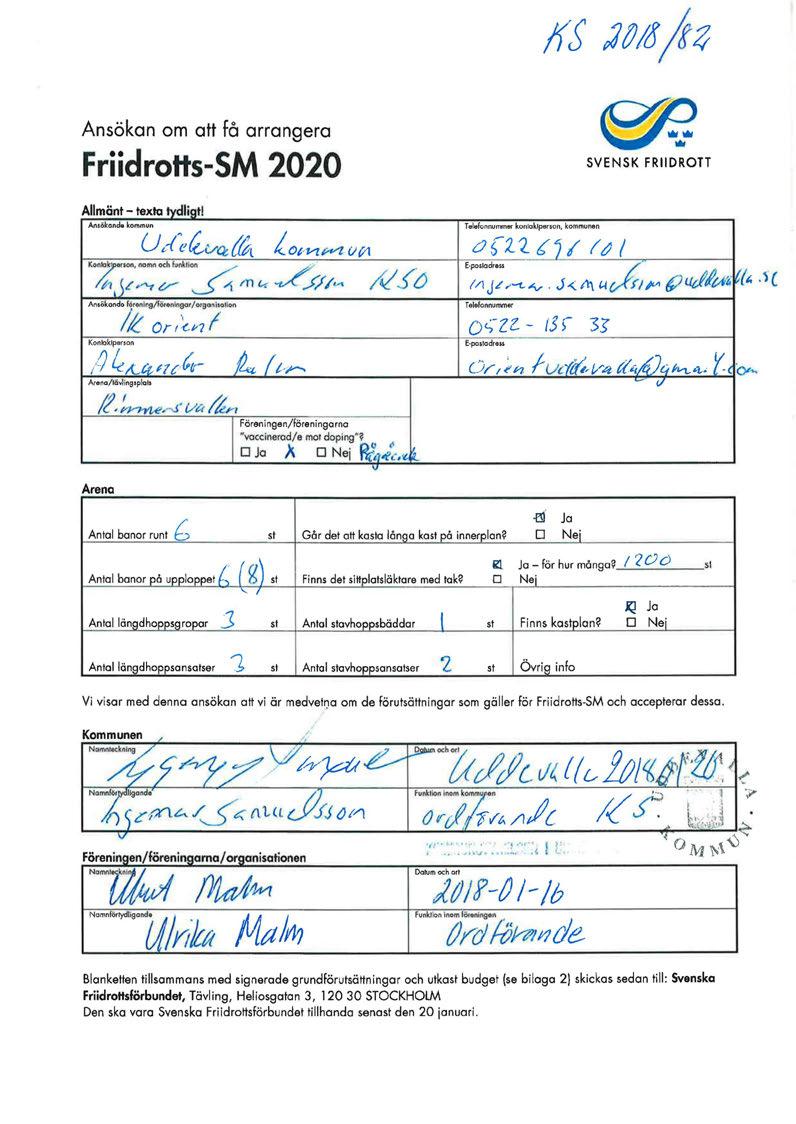 KS 2018/82
Ansökan om att få arrangera
Friidrotts-SM 2020
SVENSK FRIIDROTT
Allmänt – texta tydligt!
Ansökande kommun
Uddevalla kommun
Telefonnummer kontaktperson, kommunen
0522 696101
Kontaktperson, namn och funktion
Ingemar Samuelsson KSO
E-postadress
ingemar.samuelsson@uddevalla.se
Ansökande förening/föreningar/organisation
IK orient
Telefonnummer
0522 - 135 33
Kontaktperson
Alexander
E-postadress
Orientuddevalla@gmail.com
Arena/tävlingsplats
Rimnersvallen
Föreningen/föreningarna
"vaccinerad/e mot doping"?
☐ Ja X ☐ Nej Pågående
Arena
Antal banor runt 6 st
Går det att kasta långa kast på innerplan?
☒ Ja
☐ Nej
Antal banor på upploppet 6 (8) st
Finns det sittplatsläktare med tak?
☒ Ja – för hur många? 1200 st
☐ Nej
Antal längdhoppsgropar 3 st
Antal stavhoppsbäddar 1 st
Finns kastplan?
☒ Ja
☐ Nej
Antal längdhoppsansatser 3 st
Antal stavhoppsansatser 2 st
Övrig info
Vi visar med denna ansökan att vi är medvetna om de förutsättningar som gäller för Friidrotts-SM och accepterar dessa.
Kommunen
Namnteckning
Datum och ort
Uddevalla 2018
Namnförtydligande
Ingemar Samuelsson
Funktion inom kommunen
ordförande KS.
UDDEVALLA KOMMUN
Föreningen/föreningarna/organisationen
Namnteckning
Malm
Datum och ort
2018-01-16
Namnförtydligande
Ulrika Malm
Funktion inom föreningen
Ordförande
Blanketten tillsammans med signerade grundförutsättningar och utkast budget (se bilaga 2) skickas sedan till: Svenska
Friidrottsförbundet, Tävling, Heliosgatan 3, 120 30 STOCKHOLM
Den ska vara Svenska Friidrottsförbundet tillhanda senast den 20 januari.